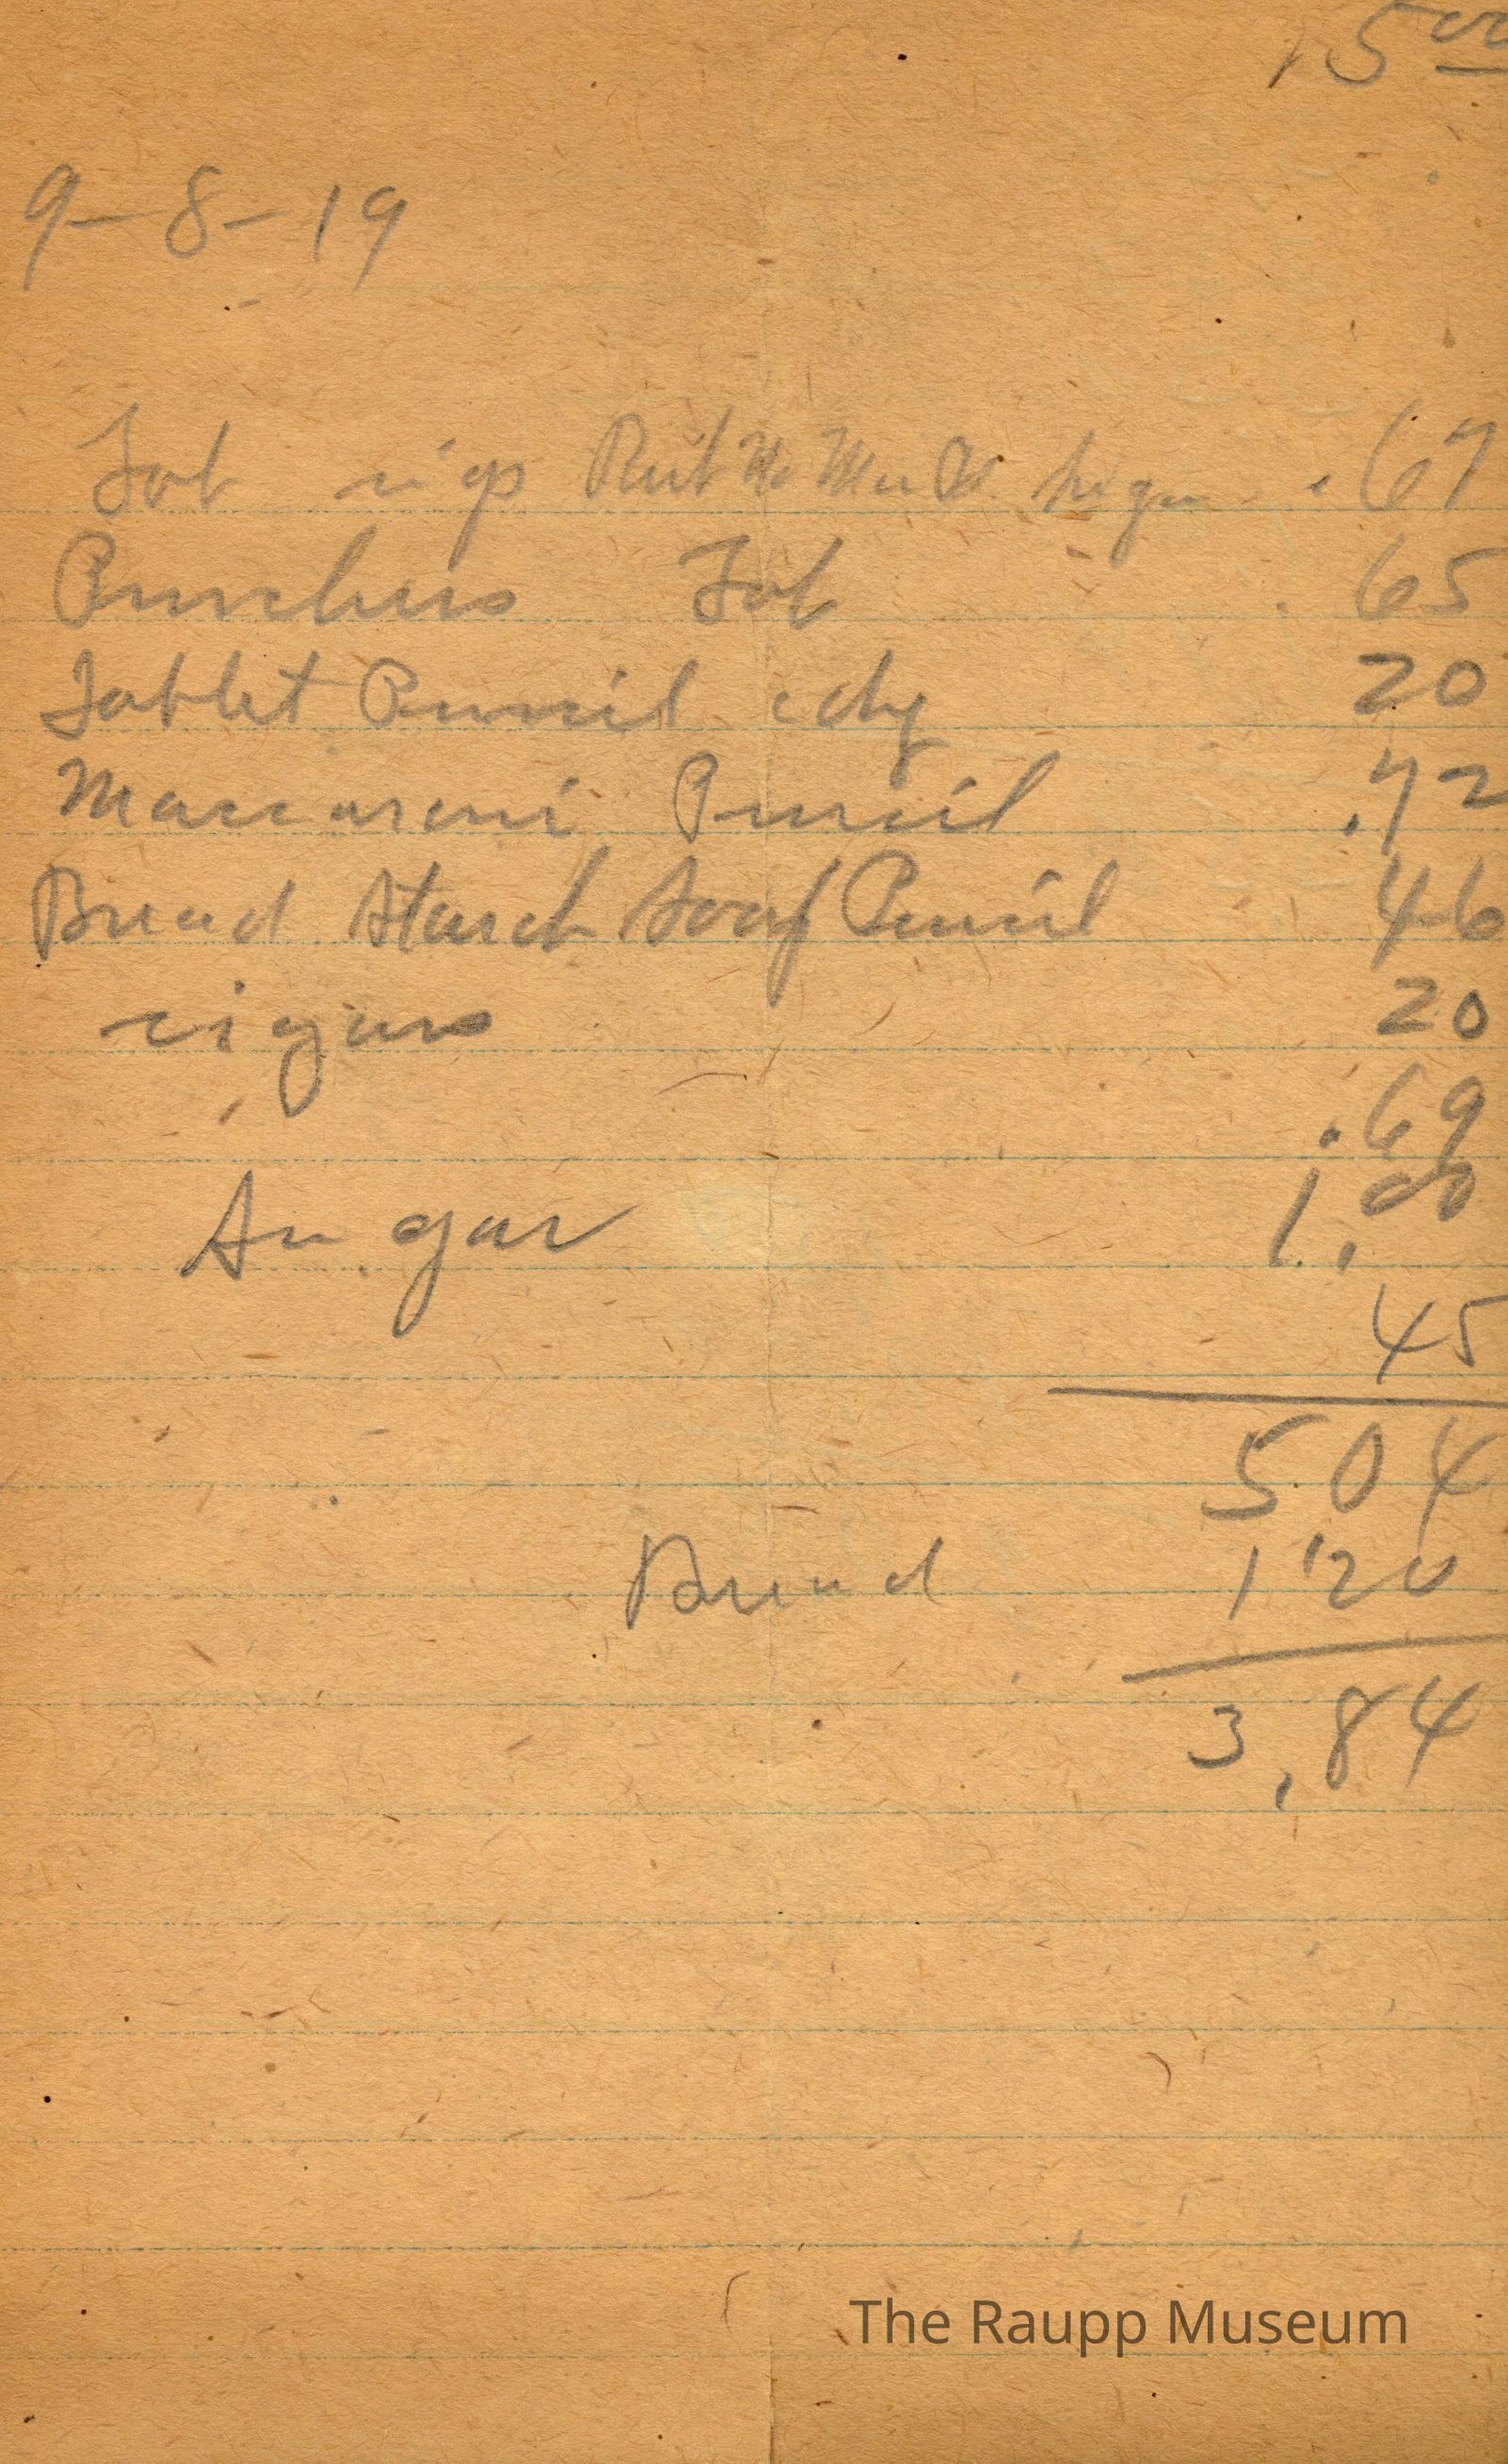 15 00
9-8-19
Tob cigs .67
Punchers Tob .65
Tablet Pencil cdy 20
Maccaroni Pencil .72
Bread Starch Soap Pencil 46
cigars 20
.69
Sugar 1.00
45
504
Bread 1 20
3.84
The Raupp Museum